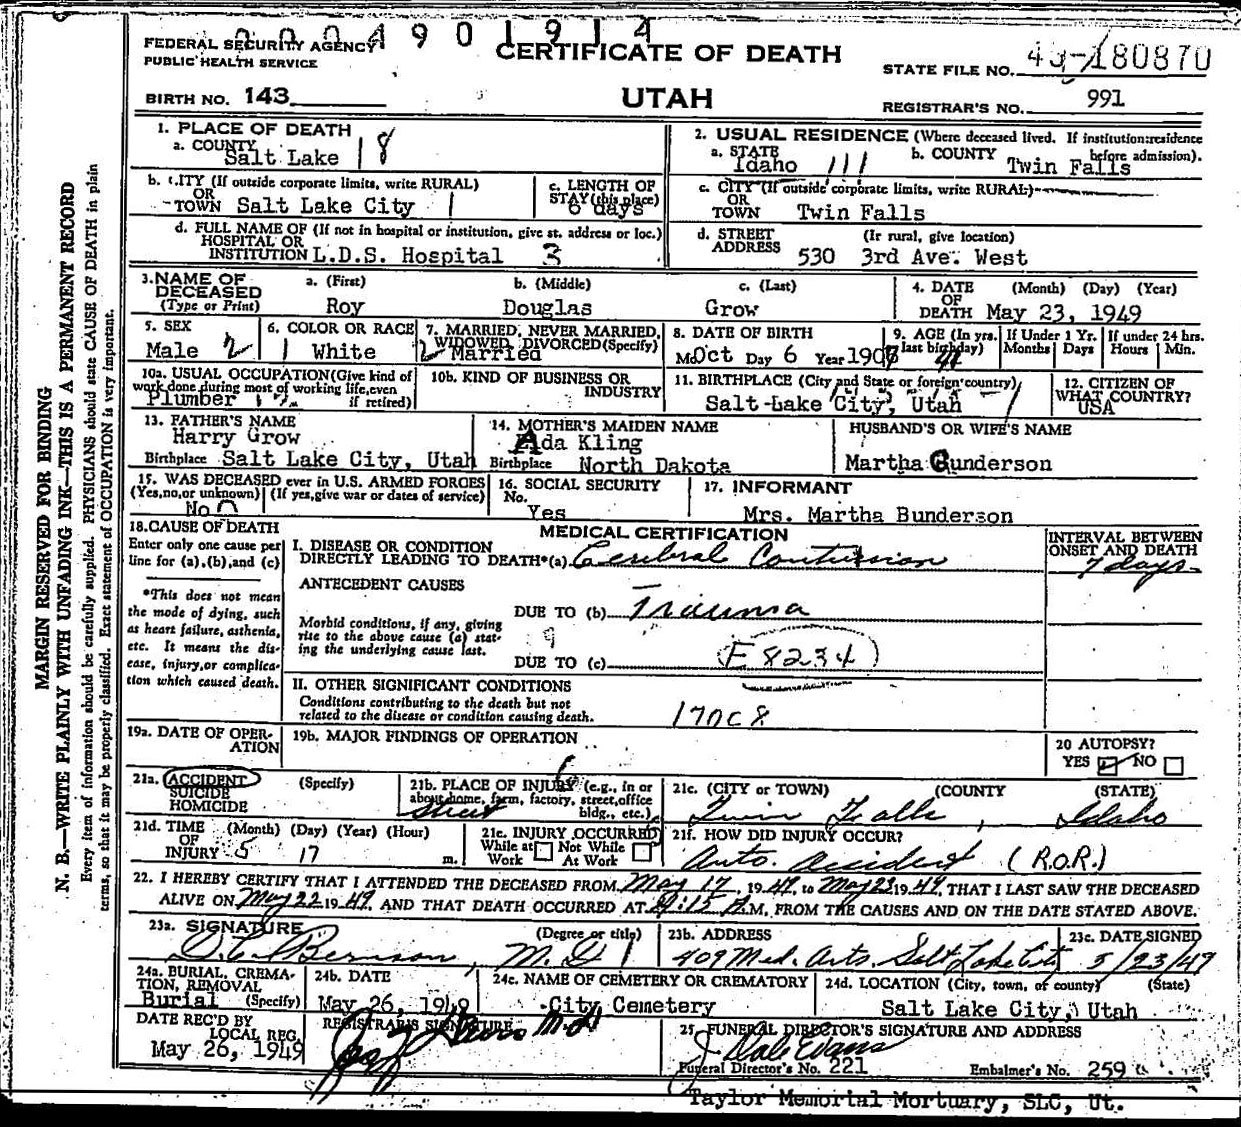 0004901914
FEDERAL SECURITY AGENCY
PUBLIC HEALTH SERVICE
CERTIFICATE OF DEATH
STATE FILE NO. 180870
BIRTH NO. 143
UTAH
REGISTRAR'S NO. 991
MARGIN RESERVED FOR BINDING
N. B.—WRITE PLAINLY WITH UNFADING INK—THIS IS A PERMANENT RECORD
Every item of information should be carefully supplied. PHYSICIANS should state CAUSE OF DEATH in plain
terms, so that it may be properly classified. Exact statement of OCCUPATION is very important.
1. PLACE OF DEATH
a. COUNTY
Salt Lake 18
2. USUAL RESIDENCE (Where deceased lived. If institution:residence
before admission).
a. STATE
Idaho 111
b. COUNTY
Twin Falls
b. CITY (If outside corporate limits, write RURAL)
OR
TOWN Salt Lake City 1
c. LENGTH OF
STAY (this place)
6 days
c. CITY (If outside corporate limits, write RURAL)
OR
TOWN Twin Falls
d. FULL NAME OF (If not in hospital or institution, give st. address or loc.)
HOSPITAL OR
INSTITUTION L.D.S. Hospital 3
d. STREET
ADDRESS
(If rural, give location)
530 3rd Ave. West
3. NAME OF
DECEASED
(Type or Print)
a. (First)
Roy
b. (Middle)
Douglas
c. (Last)
Grow
4. DATE
OF
DEATH
(Month) (Day) (Year)
May 23, 1949
5. SEX
Male 2
6. COLOR OR RACE
1 White
7. MARRIED, NEVER MARRIED,
WIDOWED, DIVORCED (Specify)
2 Married
8. DATE OF BIRTH
M Oct Day 6 Year 1907
9. AGE (In yrs.
last birthday)
41
If Under 1 Yr.
Months Days
If under 24 hrs.
Hours Min.
10a. USUAL OCCUPATION (Give kind of
work done during most of working life, even
if retired)
Plumber
10b. KIND OF BUSINESS OR
INDUSTRY
11. BIRTHPLACE (City and State or foreign country)
Salt Lake City, Utah
12. CITIZEN OF
WHAT COUNTRY?
USA
13. FATHER'S NAME
Harry Grow
Birthplace Salt Lake City, Utah
14. MOTHER'S MAIDEN NAME
Ada Kling
Birthplace North Dakota
HUSBAND'S OR WIFE'S NAME
Martha Gunderson
15. WAS DECEASED ever in U.S. ARMED FORCES
(Yes, no, or unknown) (If yes, give war or dates of service)
No 0
16. SOCIAL SECURITY
No.
Yes
17. INFORMANT
Mrs. Martha Bunderson
18. CAUSE OF DEATH
Enter only one cause per
line for (a), (b), and (c)
*This does not mean
the mode of dying, such
as heart failure, asthenia,
etc. It means the dis-
ease, injury, or complica-
tion which caused death.
MEDICAL CERTIFICATION
INTERVAL BETWEEN
ONSET AND DEATH
I. DISEASE OR CONDITION
DIRECTLY LEADING TO DEATH*(a) Cerebral Contusion
7 days
ANTECEDENT CAUSES
DUE TO (b) Trauma
Morbid conditions, if any, giving
rise to the above cause (a) stat-
ing the underlying cause last.
9
DUE TO (c) E8234
II. OTHER SIGNIFICANT CONDITIONS
Conditions contributing to the death but not
related to the disease or condition causing death.
170C8
19a. DATE OF OPER-
ATION
19b. MAJOR FINDINGS OF OPERATION
20 AUTOPSY?
YES NO
21a. ACCIDENT
SUICIDE
HOMICIDE
(Specify)
21b. PLACE OF INJURY (e.g., in or
about home, farm, factory, street, office
bldg., etc.)
street
21c. (CITY or TOWN) (COUNTY) (STATE)
Twin Falls, Idaho
21d. TIME
OF
INJURY
(Month) (Day) (Year) (Hour)
5 17 m.
21e. INJURY OCCURRED
While at
Work
Not While
At Work
21f. HOW DID INJURY OCCUR?
Auto. accident (R.O.R.)
22. I HEREBY CERTIFY THAT I ATTENDED THE DECEASED FROM May 17, 1949, to May 23 1949, THAT I LAST SAW THE DECEASED
ALIVE ON May 22 1949, AND THAT DEATH OCCURRED AT :15 .M., FROM THE CAUSES AND ON THE DATE STATED ABOVE.
23a. SIGNATURE
(Degree or title)
Bernson, M.D.
23b. ADDRESS
409 Med. Arts. Salt Lake City
23c. DATE SIGNED
5/23/49
24a. BURIAL, CREMA-
TION, REMOVAL
Burial (Specify)
24b. DATE
May 26, 1949
24c. NAME OF CEMETERY OR CREMATORY
City Cemetery
24d. LOCATION (City, town, or county) (State)
Salt Lake City, Utah
DATE REC'D BY
LOCAL REG.
May 26, 1949
REGISTRAR'S SIGNATURE
25. FUNERAL DIRECTOR'S SIGNATURE AND ADDRESS
J Dale Evans
Funeral Director's No. 221
Embalmer's No. 259
Taylor Memorial Mortuary, SLC, Ut.